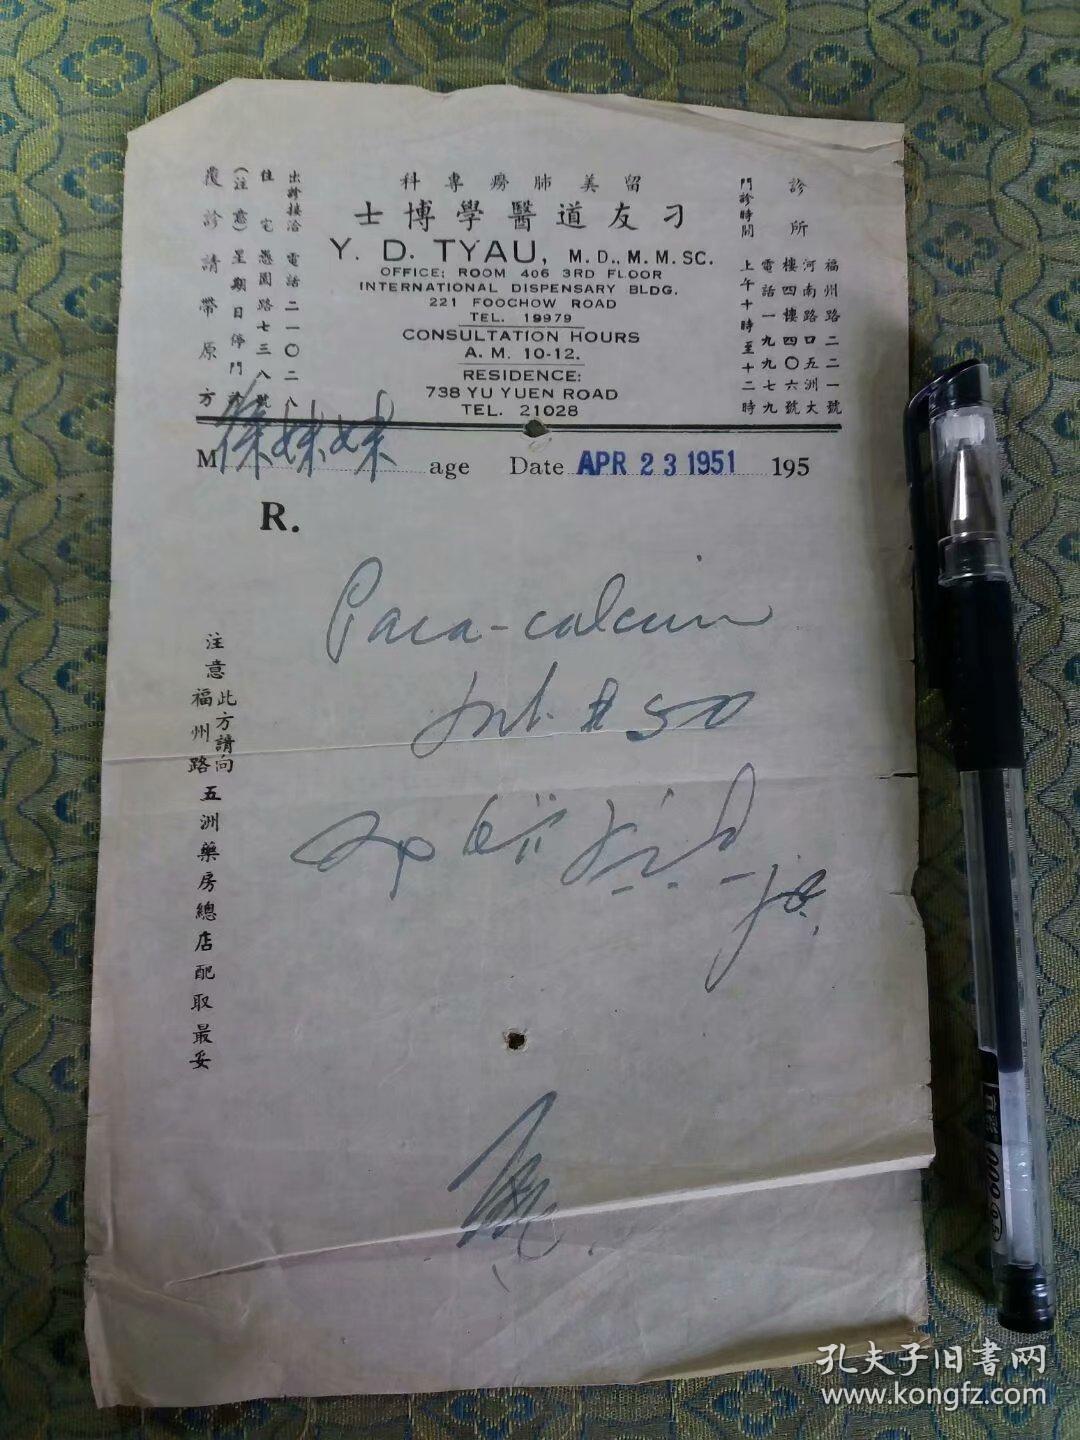 科專癆肺美留
士博學醫道友刁
Y. D. TYAU, M. D., M. M. SC.
OFFICE; ROOM 406 3RD FLOOR
INTERNATIONAL DISPENSARY BLDG.
221 FOOCHOW ROAD
TEL. 19979
CONSULTATION HOURS
A. M. 10-12.
RESIDENCE:
738 YU YUEN ROAD
TEL. 21028
診所
福州路二二一號
河南路口五洲大
樓四樓四〇六號
電話一九九七九
門診時間
上午十時至十二時
出診接洽 電話二一〇二八
住宅 愚園路七三八號
(注意) 星期日停門診
覆診請帶原方
M 徐妹妹 age Date APR 23 1951 195
R.
Para-calcium
注意
此方請向
福州路
五洲藥房總店配取最妥
貞彩 009 0.5
孔夫子旧書网
www.kongfz.com